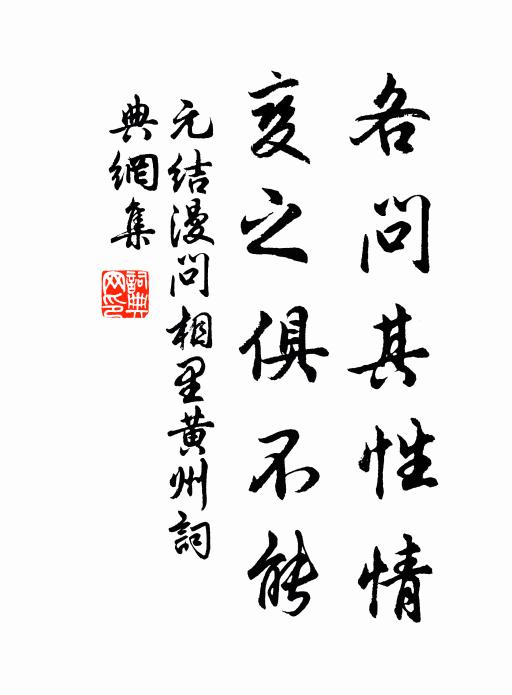 各问其性情
变之俱不能
元结漫问相里黄州词
典網集
詞典
网印